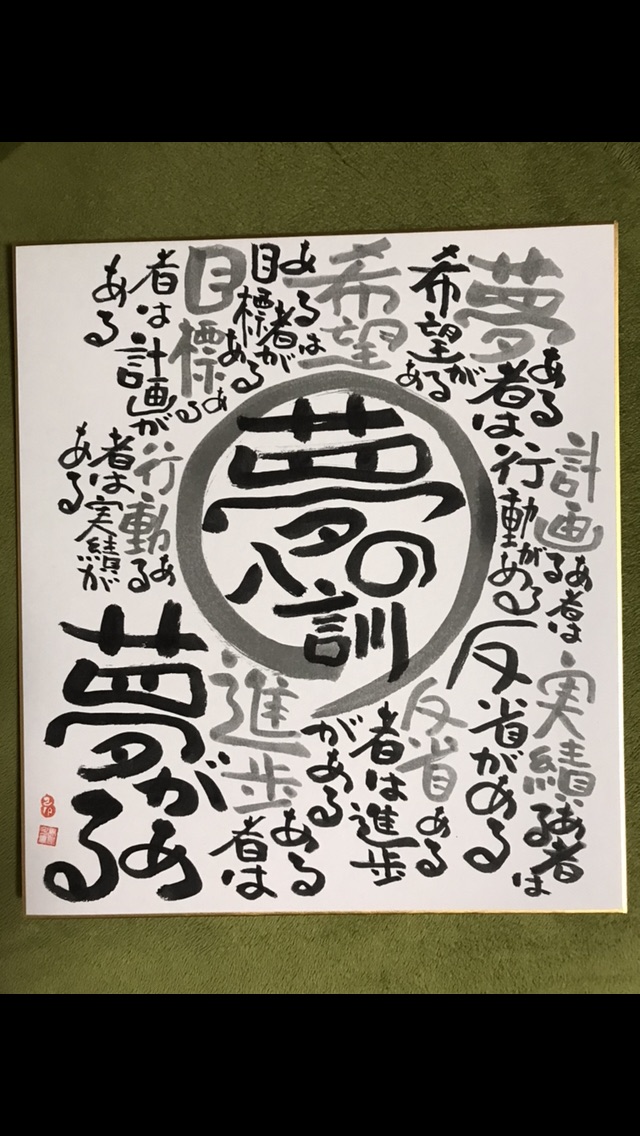 夢の
八訓
夢ある者は
希望がある
希望
ある者は
目標がある
目標ある
者は計画が
ある
計画ある者は
行動がある
行動ある
者は実績が
ある
実績ある者は
反省がある
反省ある
者は進歩
がある
進歩ある
者は
夢があ
る